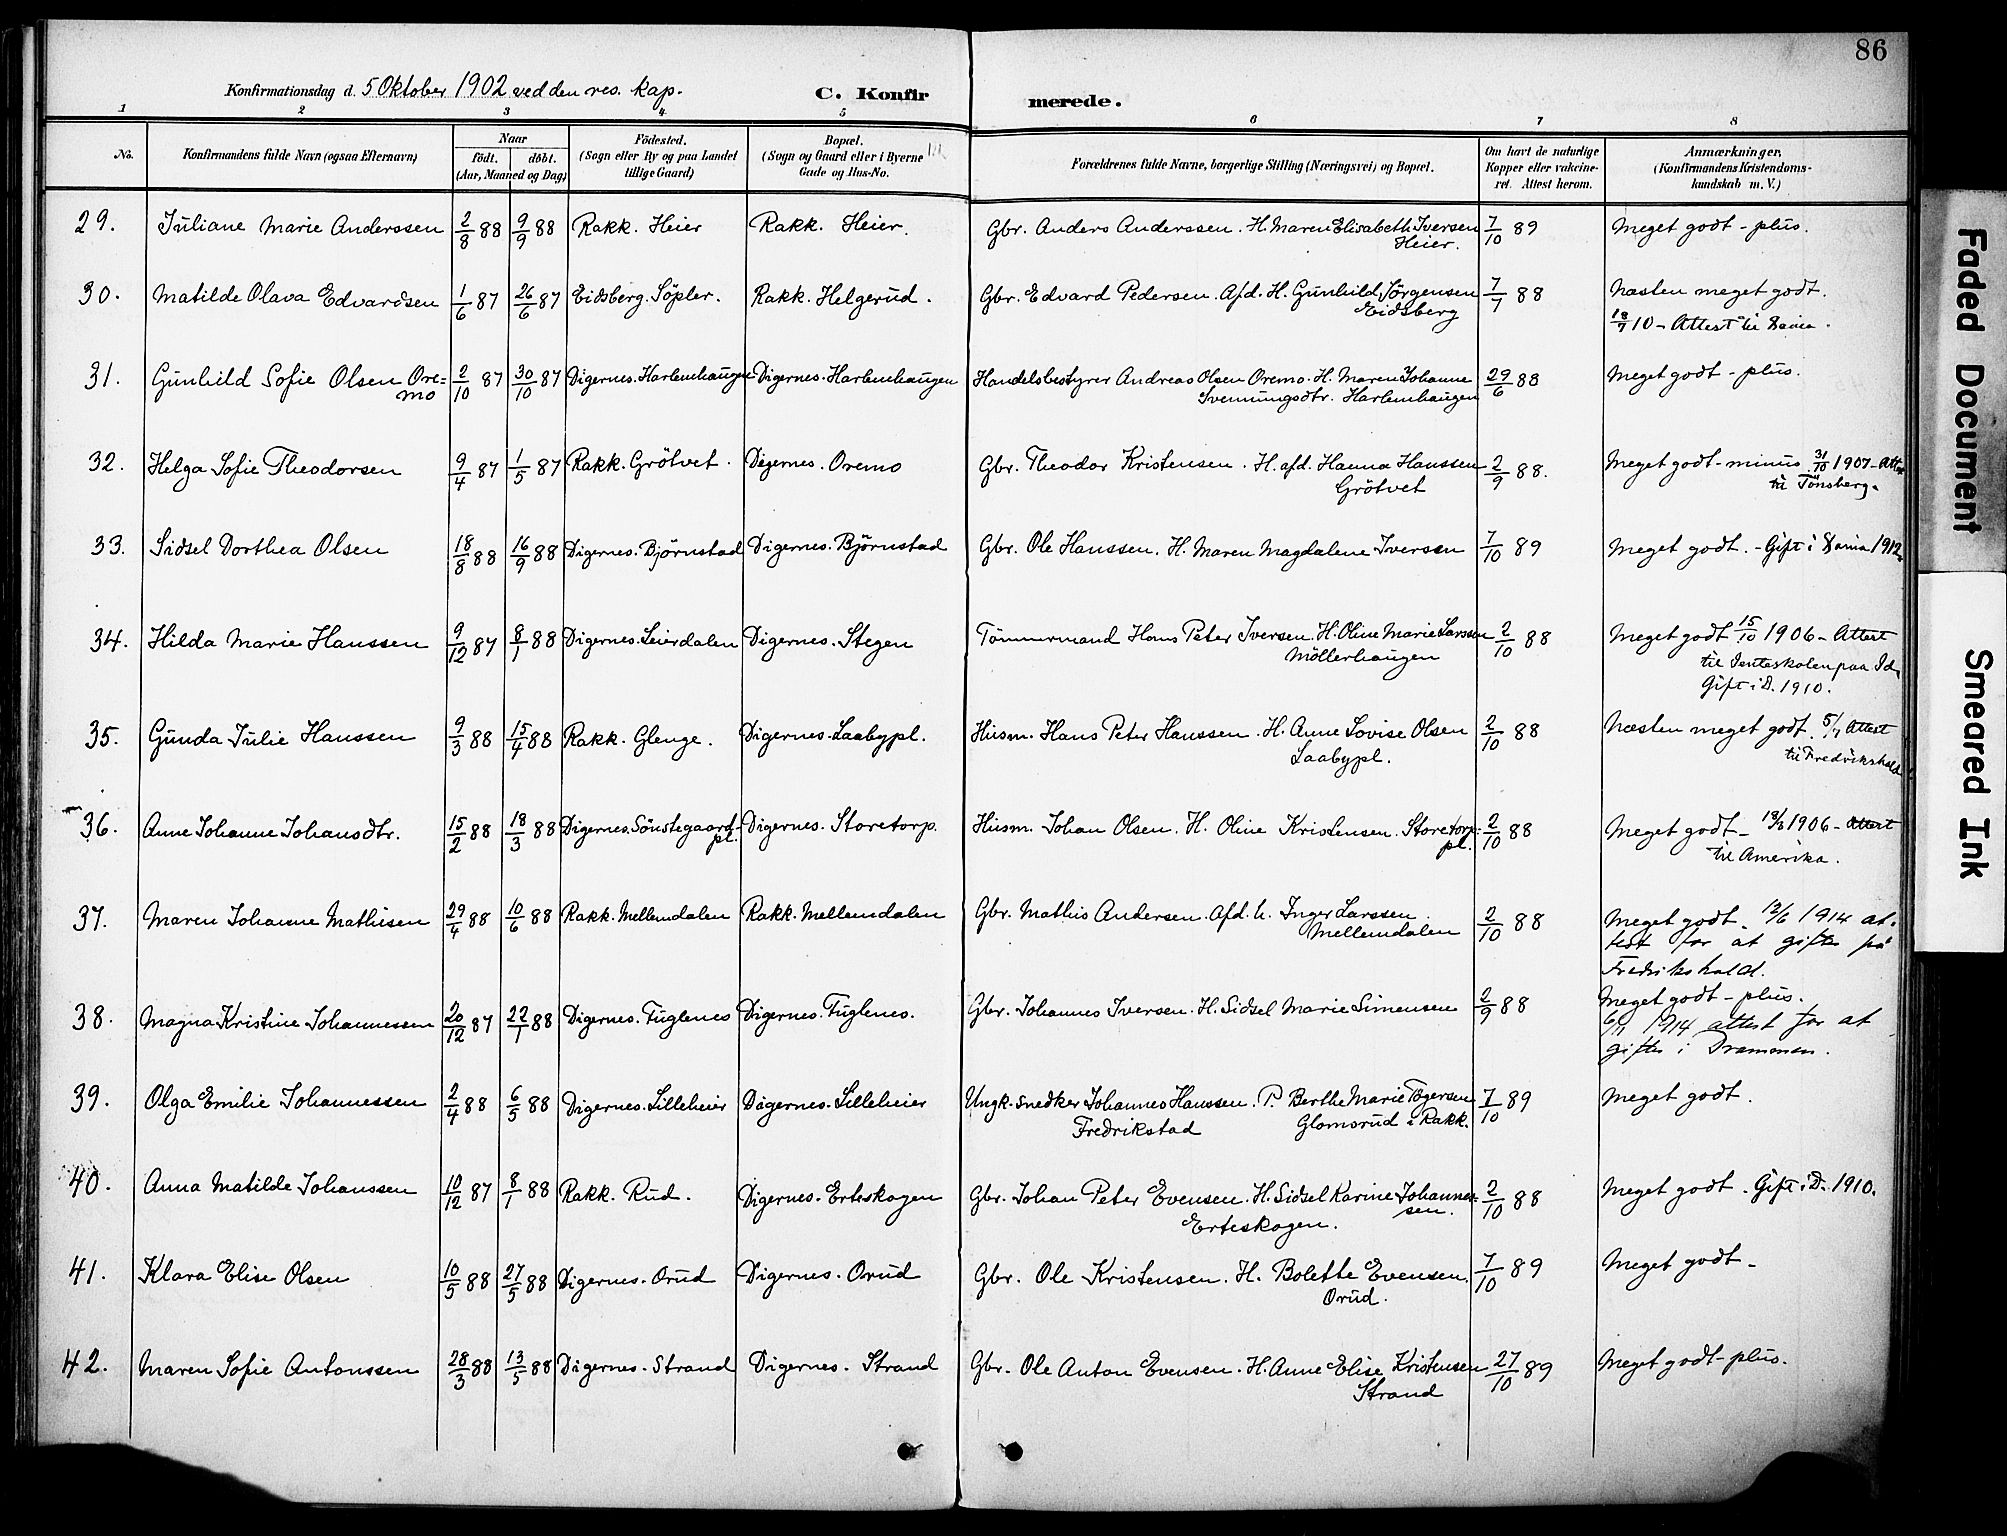 86
Konfirmationsdag d. 5 Oktober 1902 ved den res. kap. C. Konfirmerede.
1 2 3 4 5 6 7 8
No. Konfirmandens fulde Navn (ogsaa Efternavn) Naar födt. döbt. (Aar, Maaned og Dag) Födested. (Sogn eller By og paa Landet tillige Gaard) Bopæl. (Sogn og Gaard eller i Byerne Gade og Hus-No. Forældrenes fulde Navne, borgerlige Stilling (Næringsvei) og Bopæl. Om havt de naturlige Kopper eller vakcineret. Attest herom. Anmærkninger. (Konfirmandens Kristendomskundskab m. V.)
29. Juliane Marie Anderssen 2/8 88 9/9 88 Rakk. Heier Rakk. Heier. Gbr. Anders Anderssen. H. Maren Elisabeth Iversen 7/10 89 Meget godt - plus.
Heier.
30. Matilde Olava Edvardsen 1/6 87 26/6 87 Eidsberg. Söpler. Rakk. Helgerud. Gbr. Edvard Pedersen. Afd. H. Gunhild Jörgensen 7/7 88 Næsten meget godt.
Eidsberg 18/7 10 - Attest til
31. Gunhild Sofie Olsen Ore= 2/10 87 30/10 87 Digernes. Harlemhaugen Digernes. Harlemhaugen Handelsbestyrer Andreas Olsen Oremo. H. Maren Johanne 29/6 88 Meget godt - plus.
mo Svennungsdtr. Harlemhaugen
32. Helga Sofie Theodorsen 9/4 87 1/5 87 Rakk. Grötvet. Digernes. Oremo Gbr. Theodor Kristensen. H. afd. Hanna Hanssen 2/9 88. Meget godt - minus. 31/10 1907 - Attest
Grötvet til Tönsberg.
33. Sidsel Dorthea Olsen 18/8 88 16/9 88 Digernes. Björnstad Digernes. Björnstad Gbr. Ole Hanssen. H. Maren Magdalene Iversen 7/10 89 Meget godt. - Gift i 1912.
34. Hilda Marie Hanssen 9/12 87 8/1 88 Digernes. Leierdalen Digernes. Stegen Tömmermand Hans Peter Iversen. H. Oline Marie Larssen 2/10 88 Meget godt 15/10 1906 - Attest
Möllerhaugen til Jenteskolen paa Id.
Gift i D. 1910.
35. Gunda Julie Hanssen 9/3 88 15/4 88 Rakk. Glenge. Digernes. Laabypl. Husm. Hans Peter Hanssen. H. Anne Lovise Olsen 2/10 88 Næsten meget godt. 5/7 Attest
Laabypl. til Fredrikshald
36. Anne Johanne Johansdtr. 15/2 88 18/3 88 Digernes. Sönstegaard- Digernes. Storetorp. Husm. Johan Olsen. H. Oline Kristensen. Storetorp= 2/10 88 Meget godt - 1906 - Attest
pl. pl. til Amerika.
37. Maren Johanne Mathisen 29/4 88 10/6 88 Rakk. Mellemdalen Rakk. Mellemdalen Gbr. Mathis Andersen. Afd. h. Inger Larssen. 2/10 88 Meget godt. 12/6 1914 at=
Mellemdalen test for at giftes på
Fredrikshald.
38. Magna Kristine Johannessen 20/12 87 22/1 88 Digernes. Fuglenes Digernes. Fuglenes. Gbr. Johannes Iversen. H. Sidsel Marie Simensen 2/9 88 Meget godt - plus.
6/11 1914 attest for at
giftes i Drammen.
39. Olga Emilie Johannessen 2/4 88 6/5 88 Digernes. Lilleheier Digernes. Lilleheier Ungk. snedker Johannes Hanssen. P. Berthe Marie Tögersen 7/10 89 Meget godt.
Fredrikstad Glomsrud i Rakk.
40. Anna Matilde Johanssen 10/12 87 8/1 88 Rakk. Rud. Digernes. Erteskogen Gbr. Johan Peter Evensen. H. Sidsel Karine Johannes= 2/10 88 Meget godt. Gift i D. 1910.
sen.
Erteskogen.
41. Klara Elise Olsen 10/5 88 27/5 88 Digernes. Orud Digernes. Orud Gbr. Ole Kristensen. H. Bolette Evensen. 7/10 89 Meget godt -
Orud.
42. Maren Sofie Antonssen 28/3 88 13/5 88 Digernes. Strand Digernes. Strand Gbr. Ole Anton Evensen. H. Anne Elise Kristensen 27/10 89 Meget godt - plus.
Strand
Faded Document
Smeared Ink